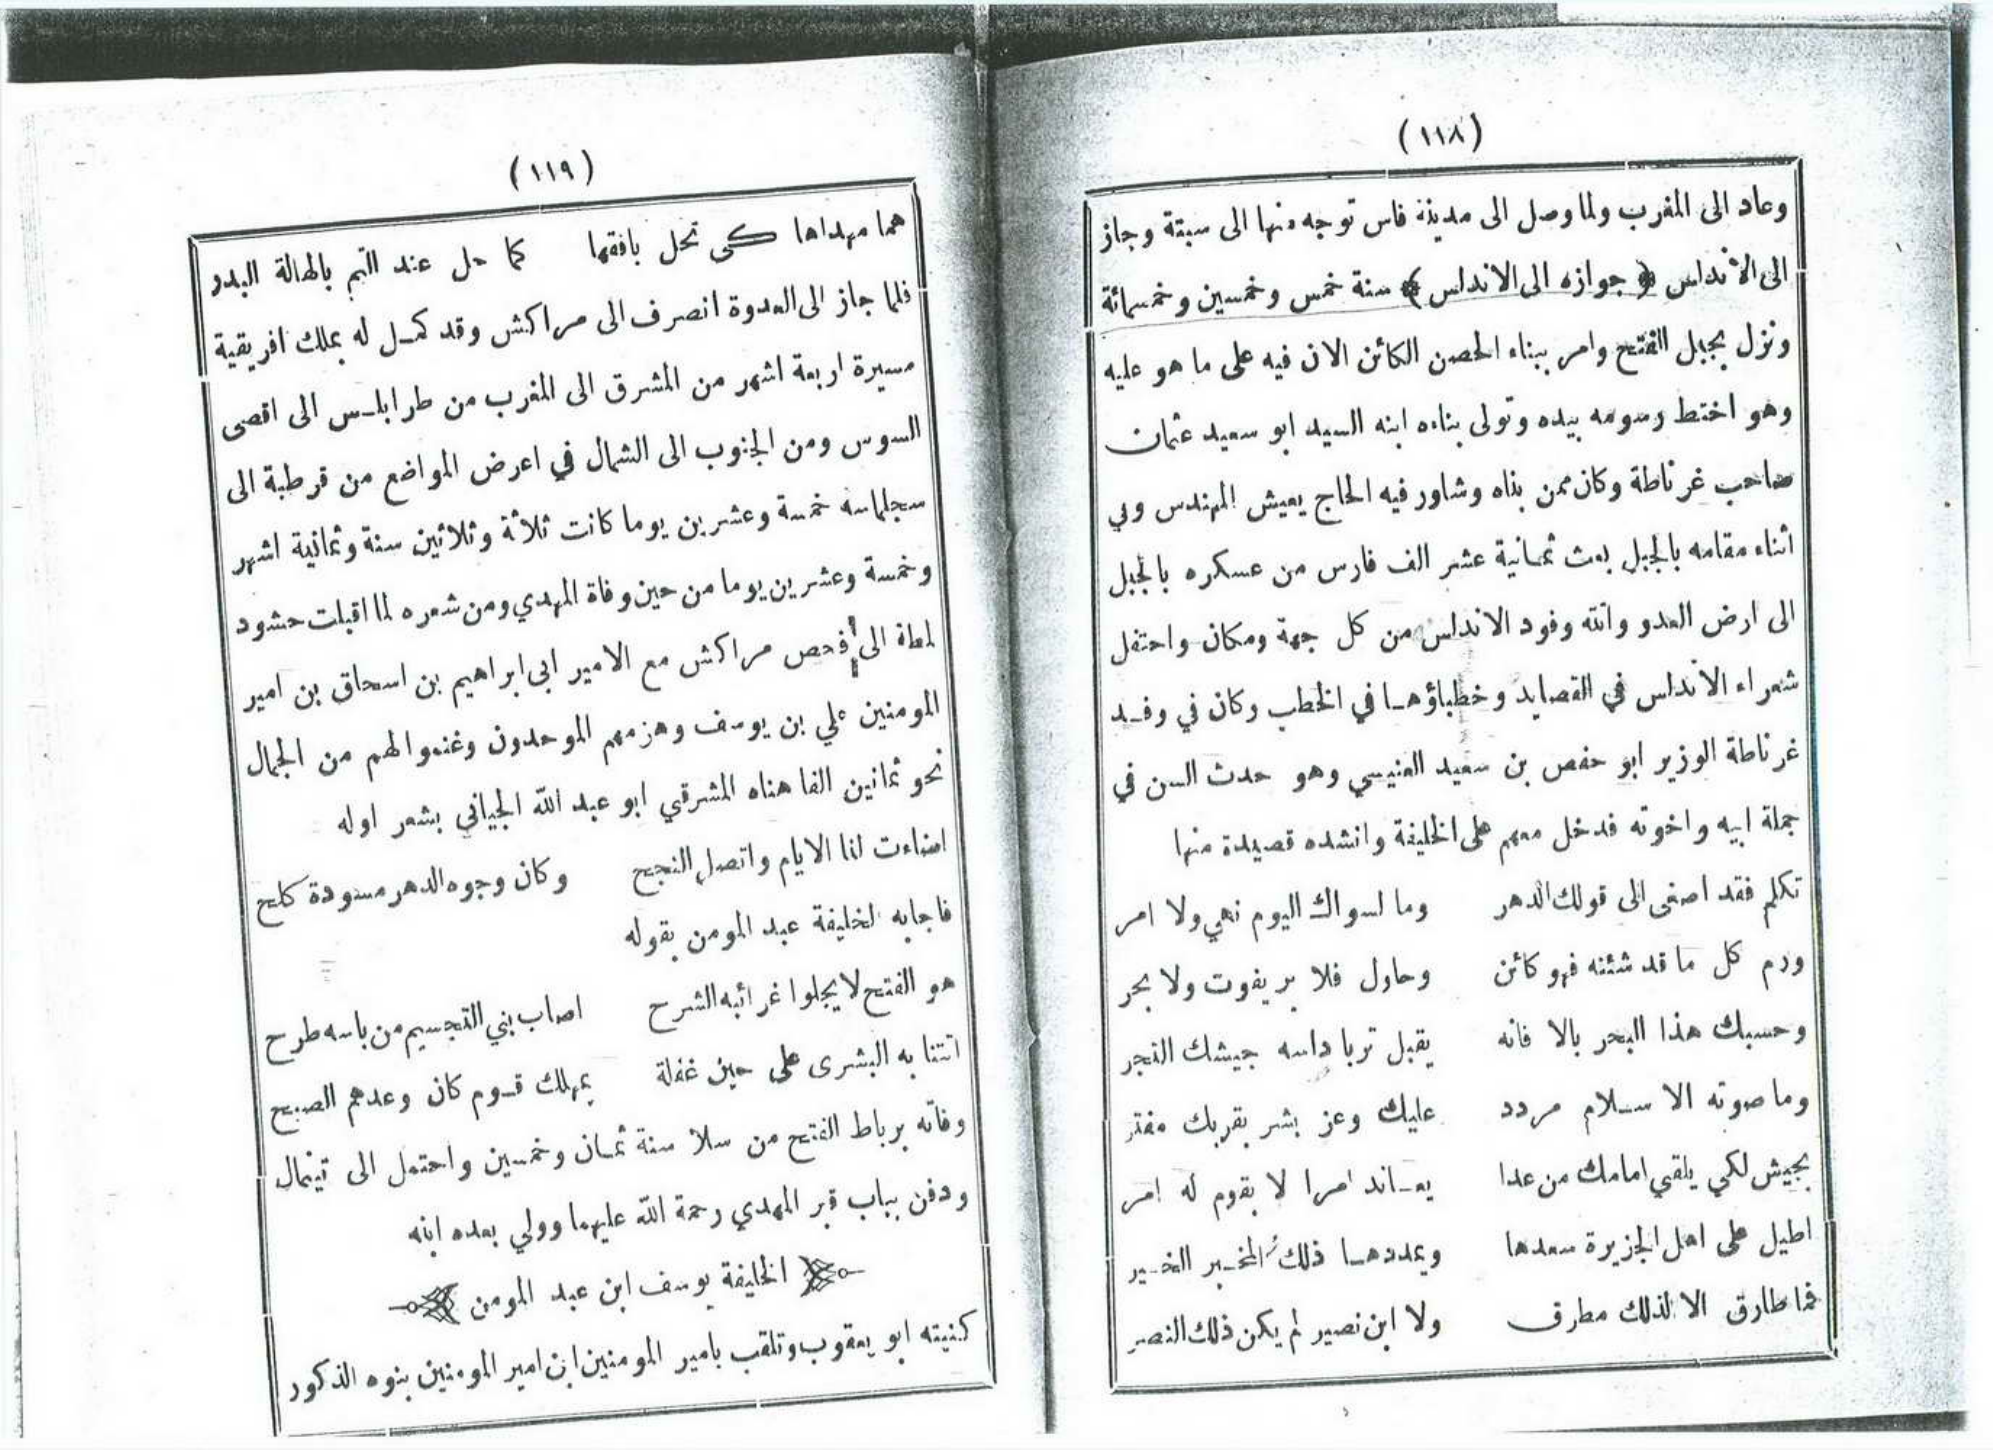 (١١٨)
وعاد الى المغرب ولما وصل الى مدينة فاس توجه منها الى سبتة وجاز
الى الاندلس ﴿ جوازه الى الاندلس ﴾ سنة خمس وخمسين وخمسمائة
ونزل بجبل الفتح وامر ببناء الحصن الكائن الان فيه على ما هو عليه
وهو اختط رسومه بيده وتولى بناءه ابنه السيد ابو سعيد عثمان
صاحب غرناطة وكان ممن بناه وشاور فيه الحاج يعيش المهندس وفي
أثناء مقامه بالجبل بعث ثمانية عشر الف فارس من عسكره بالجبل
الى ارض العدو واتته وفود الاندلس من كل جهة ومكان واحتفل
شعراء الاندلس في القصايد وخطباؤهـا في الخطب وكان في وفـد
غرناطة الوزير ابو حفص بن سعيد العنيسي وهو حدث السن في
جملة ابيه واخوته فدخل معهم على الخليفة وانشده قصيدة منها
تكلم فقد اصغى الى قولك الدهر وما لسواك اليوم نهي ولا امر
ورم كل ما قد شئنه فهو كائن وحاول فلا بر يفوت ولا بحر
وحسبك هذا البحر بالا فانه يقبل تربا داسه جيشك الغجر
وما صوته الا سـلام مردد عليك وعز بشر بقربك مفتر
بجيش لكي يلقي امامك من عدا يعـاند امرا لا يقوم له امر
اطيل على اهل الجزيرة سعدها ويمددهـا ذلك المخـبر الخـير
فما طارق الا لذلك مطرق ولا ابن نصير لم يكن ذلك النصر
(١١٩)
هما مهداها كـى تحل بافقها كما حل عند التم بالهالة البدر
فلما جاز الى العدوة انصرف الى مراكش وقد كمـل له بملك افريقية
مسيرة اربعة اشهر من المشرق الى المغرب من طرابلـس الى اقصى
السوس ومن الجنوب الى الشمال في اعرض المواضع من قرطبة الى
سجلماسه خمسة وعشرين يوما كانت ثلاثة وثلاثين سنة وثمانية اشهر
وخمسة وعشرين يوما من حين وفاة المهدي ومن شعره لما اقبلت حشود
لمطة الى فحص مراكش مع الامير ابى ابراهيم بن اسحاق بن امير
المومنين علي بن يوسف وهزمهم الموحدون وغنموا لهم من الجمال
نحو ثمانين الفا هناه المشرقي ابو عبد الله الجياني بشعر اوله
اضاءت لنا الايام واتصل النجح وكان وجوه الدهر مسودة كلح
فاجابه الخليفة عبد المومن بقوله
هو الفتح لا يجلوا غرائبه الشرح اصاب بني التجسيم من باسه طرح
اتتنا به البشرى على حين غفلة بمهلك قـوم كان وعدهم الصبح
وفاته برباط الفتح من سلا سنة ثمـان وخمسين واحتمل الى تينمال
ودفن بباب قبر المهدي رحمة الله عليهما وولي بعده ابنه
الخليفة يوسف ابن عبد المومن
كنيته ابو يعقوب وتلقب بامير المومنين ابن امير المومنين بنوه الذكور